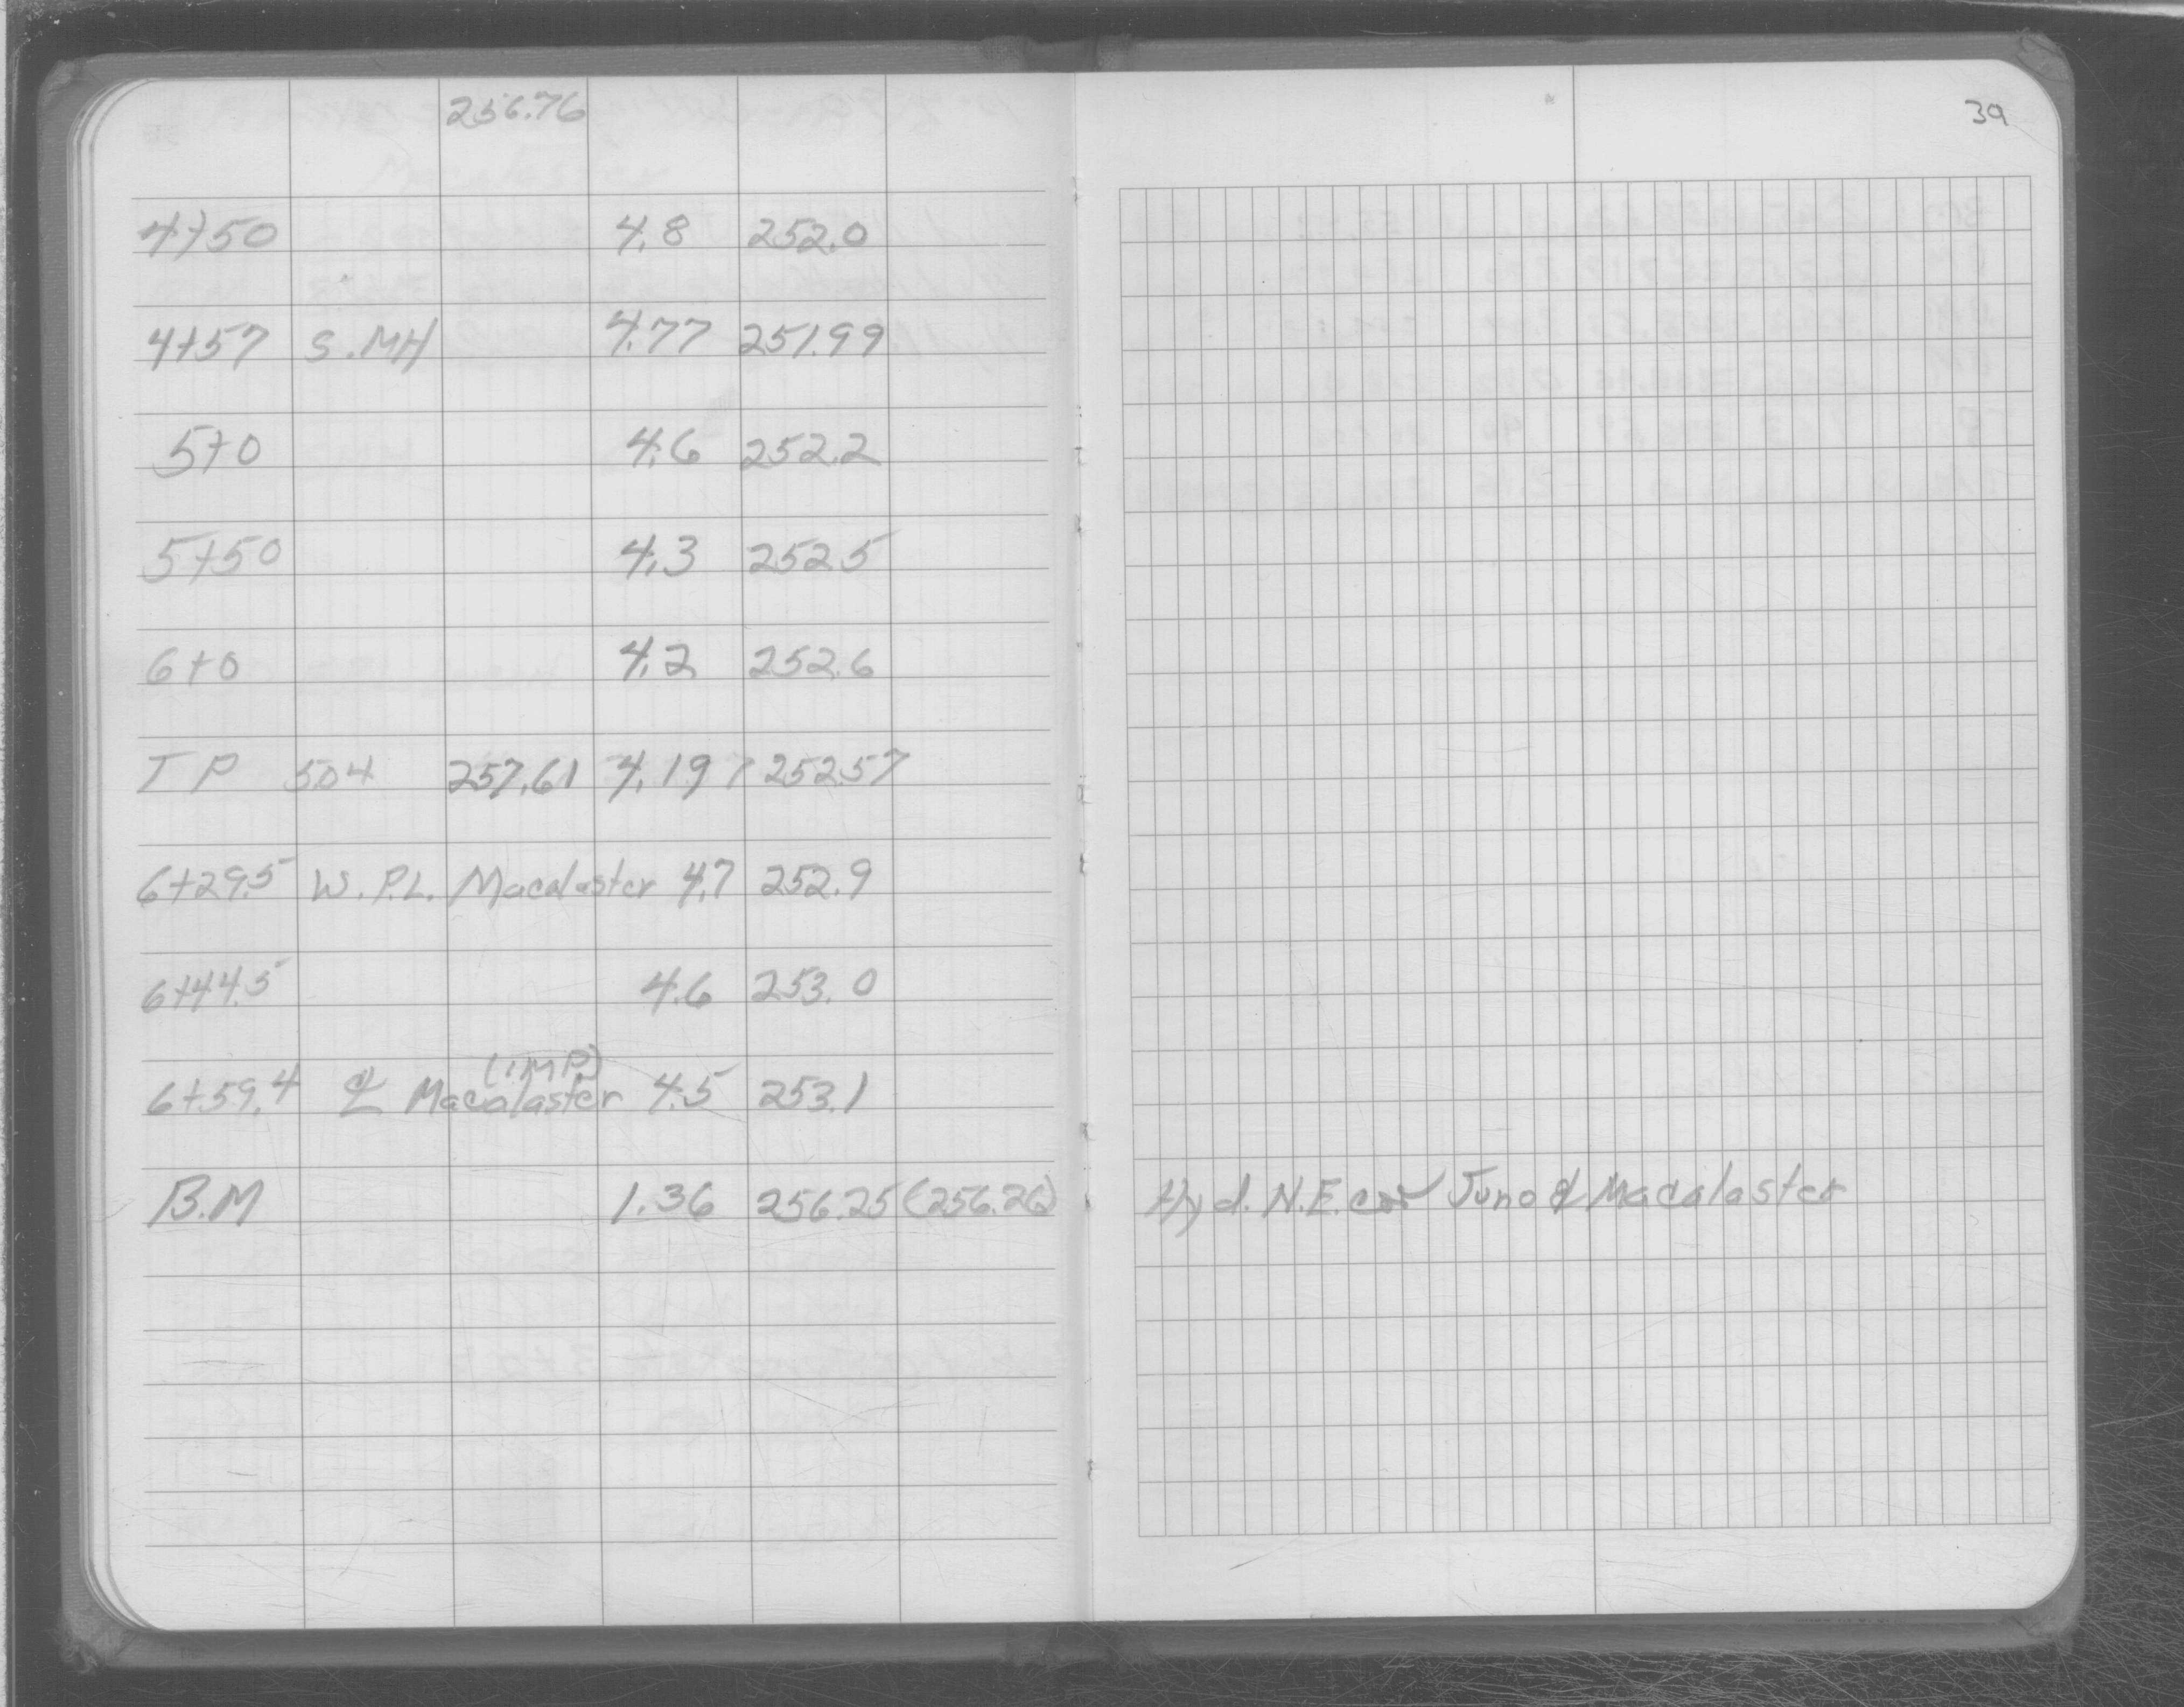 256.76
4+50 4.8 252.0
4+57 S.MH 4.77 251.99
5+0 4.6 252.2
5+50 4.3 252.5
6+0 4.2 252.6
T P 504 257.61 4.19 252.57
6+29.5 W.P.L. Macalaster 4.7 252.9
6+44.5 4.6 253.0
(IMP.)
6+59.4 ℄ Macalaster 4.5 253.1
B.M 1.36 256.25 (256.26)
39
Hyd. N.E. cor Juno & Macalaster